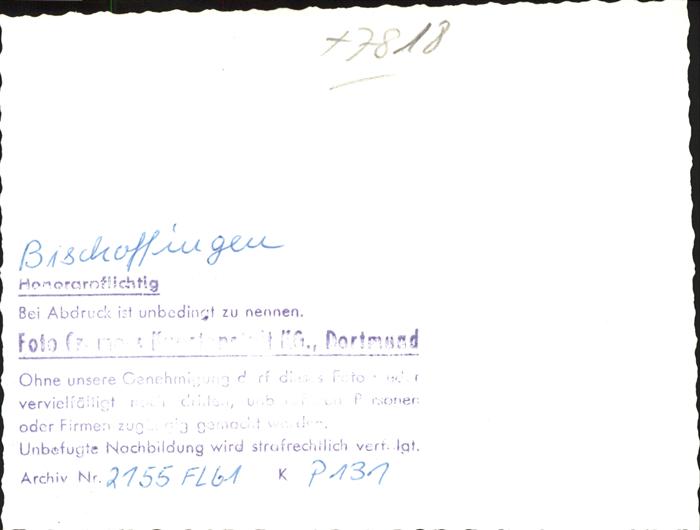 +7818
Bischoffingen
Honorarpflichtig
Bei Abdruck ist unbedingt zu nennen.
Foto KG., Dortmund
Ohne unsere Genehmigung darf dieses Foto weder
vervielfältigt noch dritten, unbefugten Personen
oder Firmen zugängig gemacht werden.
Unbefugte Nachbildung wird strafrechtlich verfolgt.
Archiv Nr. 2155 FL61 K P131